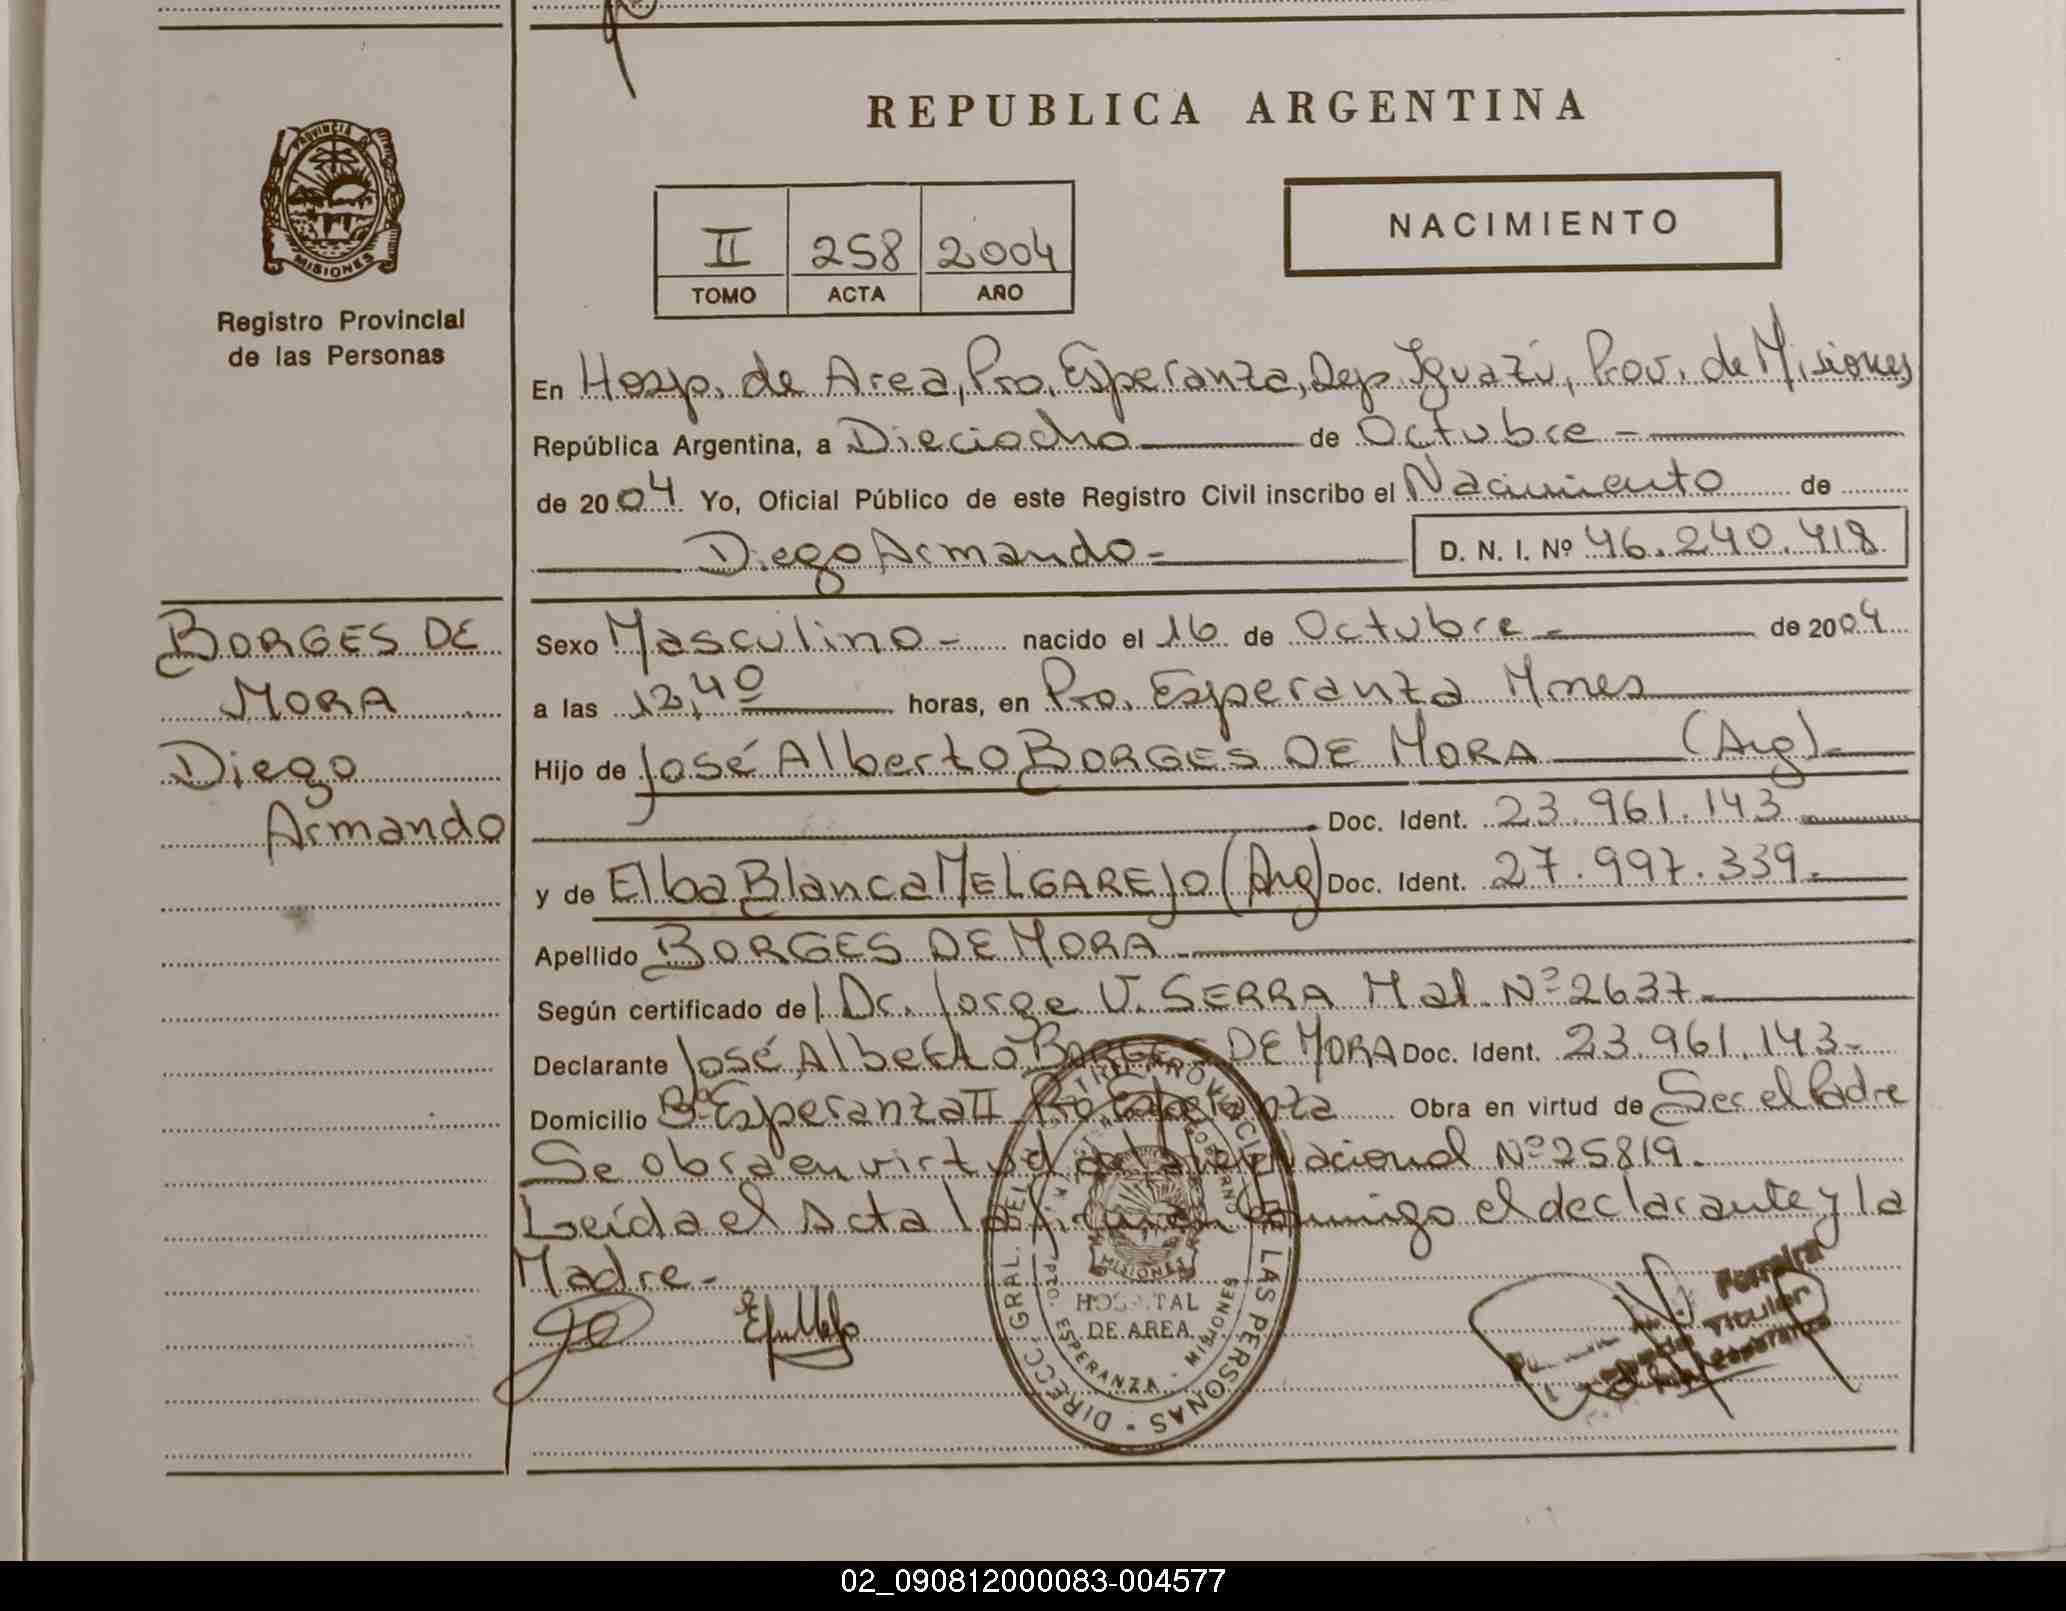 REPUBLICA ARGENTINA
PROVINCIA D
MISIONES
Registro Provincial
de las Personas
II 258 2004
TOMO ACTA AÑO
NACIMIENTO
En Hosp. de Area, Pto. Esperanza, Dep. Iguazú, Prov. de Misiones
República Argentina, a Dieciocho de Octubre -
de 2004 Yo, Oficial Público de este Registro Civil inscribo el Nacimiento de
Diego Armando - D. N. I. Nº 46.240.418
BORGES DE
MORA
Diego
Armando
Sexo Masculino - nacido el 16 de Octubre - de 2004
a las 12,40 horas, en Pto. Esperanza Mnes
Hijo de José Alberto BORGES DE MORA (Arg) -
Doc. Ident. 23.961.143
y de Elba Blanca MELGAREJO (Arg) Doc. Ident. 27.997.339.-
Apellido BORGES DE MORA -
Según certificado de Dr. Jorge V. SERRA Mat. Nº 2637 -
Declarante José Alberto BORGES DE MORA Doc. Ident. 23.961.143 -
Domicilio Bº Esperanza II Pto. Esperanza Obra en virtud de Ser el Padre
Se obra en virtud de la ley Nacional Nº 25819.
Leída el Acta la firman conmigo el declarante y la
Madre -
DIRECC. GRAL. DEL REGISTRO PROVINCIAL DE LAS PERSONAS -
MISIONES
HOSPITAL
DE AREA
PTO. ESPERANZA - MISIONES
Ferreira
Titular
Esperanza
02_090812000083-004577